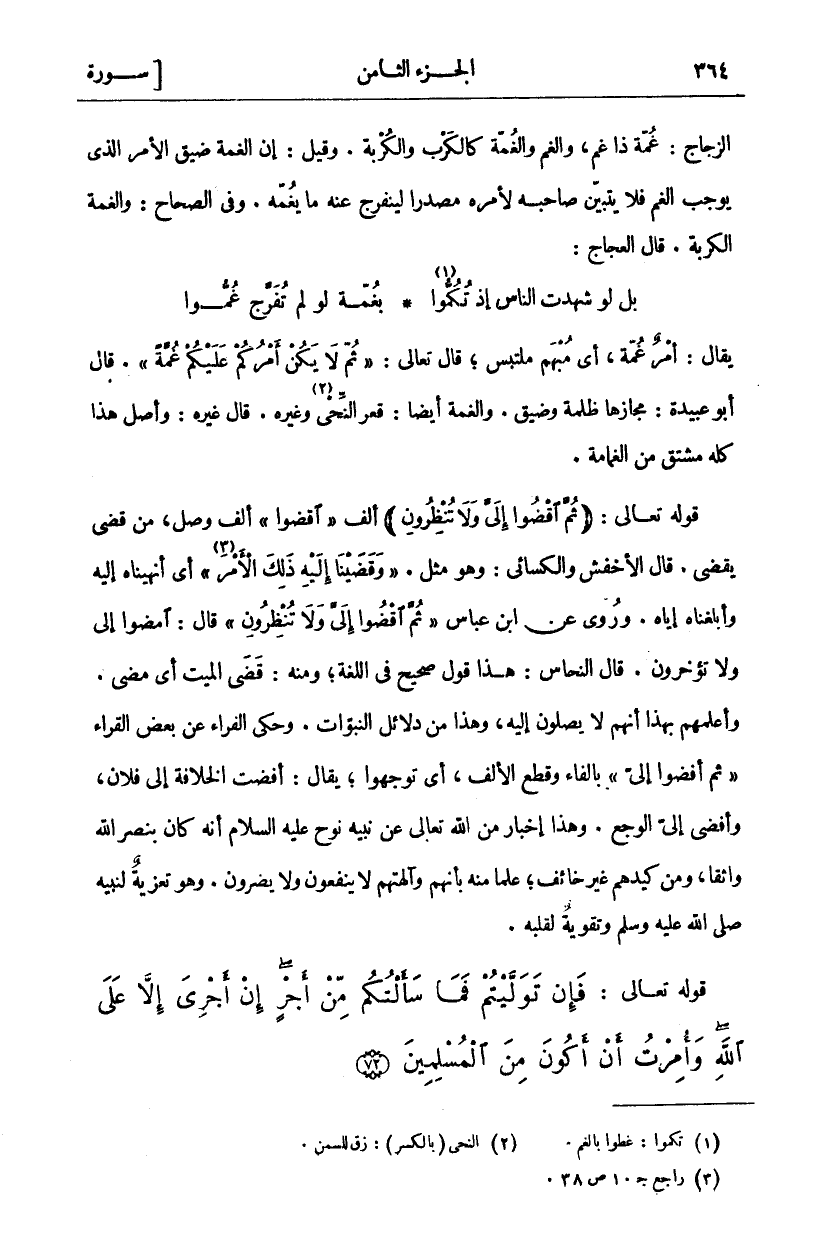 ٣٦٤ الجزء الثامن [ سورة
الزجاج : غُمّة ذا غم، والغم والغُمّة كالكَرْب والكُرْبة . وقيل : إن الغمة ضيق الأمر الذى
يوجب الغم فلا يتبيّن صاحبه لأمره مصدرا لينفرج عنه ما يغُمّه . وفى الصحاح : والغمة
الكربة . قال العجاج :
بل لو شهدت الناس إذ تُكُمُّوا (١) * بغُمّة لو لم تُفَرَّج غُمُّوا
يقال : أمْرٌ غُمّة ، أى مُبْهَم ملتبس ؛ قال تعالى : « ثُمَّ لَا يَكُنْ أَمْرُكُمْ عَلَيْكُمْ غُمَّةً » . قال
أبو عبيدة : مجازها ظلمة وضيق . والغمة أيضا : قعر النِّحْى (٢) وغيره . قال غيره : وأصل هذا
كله مشتق من الغمامة .
قوله تعالى : ﴿ ثُمَّ ٱقْضُوا إِلَىَّ وَلَا تُنْظِرُونِ ﴾ ألف « ٱقضوا » ألف وصل، من قضى
يقضى . قال الأخفش والكسائى : وهو مثل . « وَقَضَيْنَا إِلَيْهِ ذَلِكَ الْأَمْرَ (٣) » أى أنهيناه إليه
وأبلغناه إياه . ورُوى عن ابن عباس « ثُمَّ ٱقْضُوا إِلَىَّ وَلَا تُنْظِرُونِ » قال : ٱمضوا إلى
ولا تؤخرون . قال النحاس : هذا قول صحيح فى اللغة؛ ومنه : قَضَى الميت أى مضى .
وأعلمهم بهذا أنهم لا يصلون إليه، وهذا من دلائل النبؤات . وحكى الفراء عن بعض القراء
« ثم أفضوا إلىّ » بالفاء وقطع الألف ، أى توجهوا ؛ يقال : أفضت الخلافة إلى فلان،
وأفضى إلىّ الوجع . وهذا إخبار من الله تعالى عن نبيه نوح عليه السلام أنه كان بنصر الله
واثقا، ومن كيدهم غير خائف؛ علما منه بأنهم وآلهتهم لا ينفعون ولا يضرون . وهو تعزيةٌ لنبيه
صلى الله عليه وسلم وتقويةٌ لقلبه .
قوله تعالى : فَإِن تَوَلَّيْتُمْ فَمَا سَأَلْتُكُم مِّنْ أَجْرٍۖ إِنْ أَجْرِىَ إِلَّا عَلَى
ٱللَّهِۖ وَأُمِرْتُ أَنْ أَكُونَ مِنَ ٱلْمُسْلِمِينَ ﴿٧٢﴾
(١) تكموا : غطوا بالغم . (٢) النحى (بالكسر) : زق للسمن .
(٣) راجع ج ١٠ ص ٣٨ .